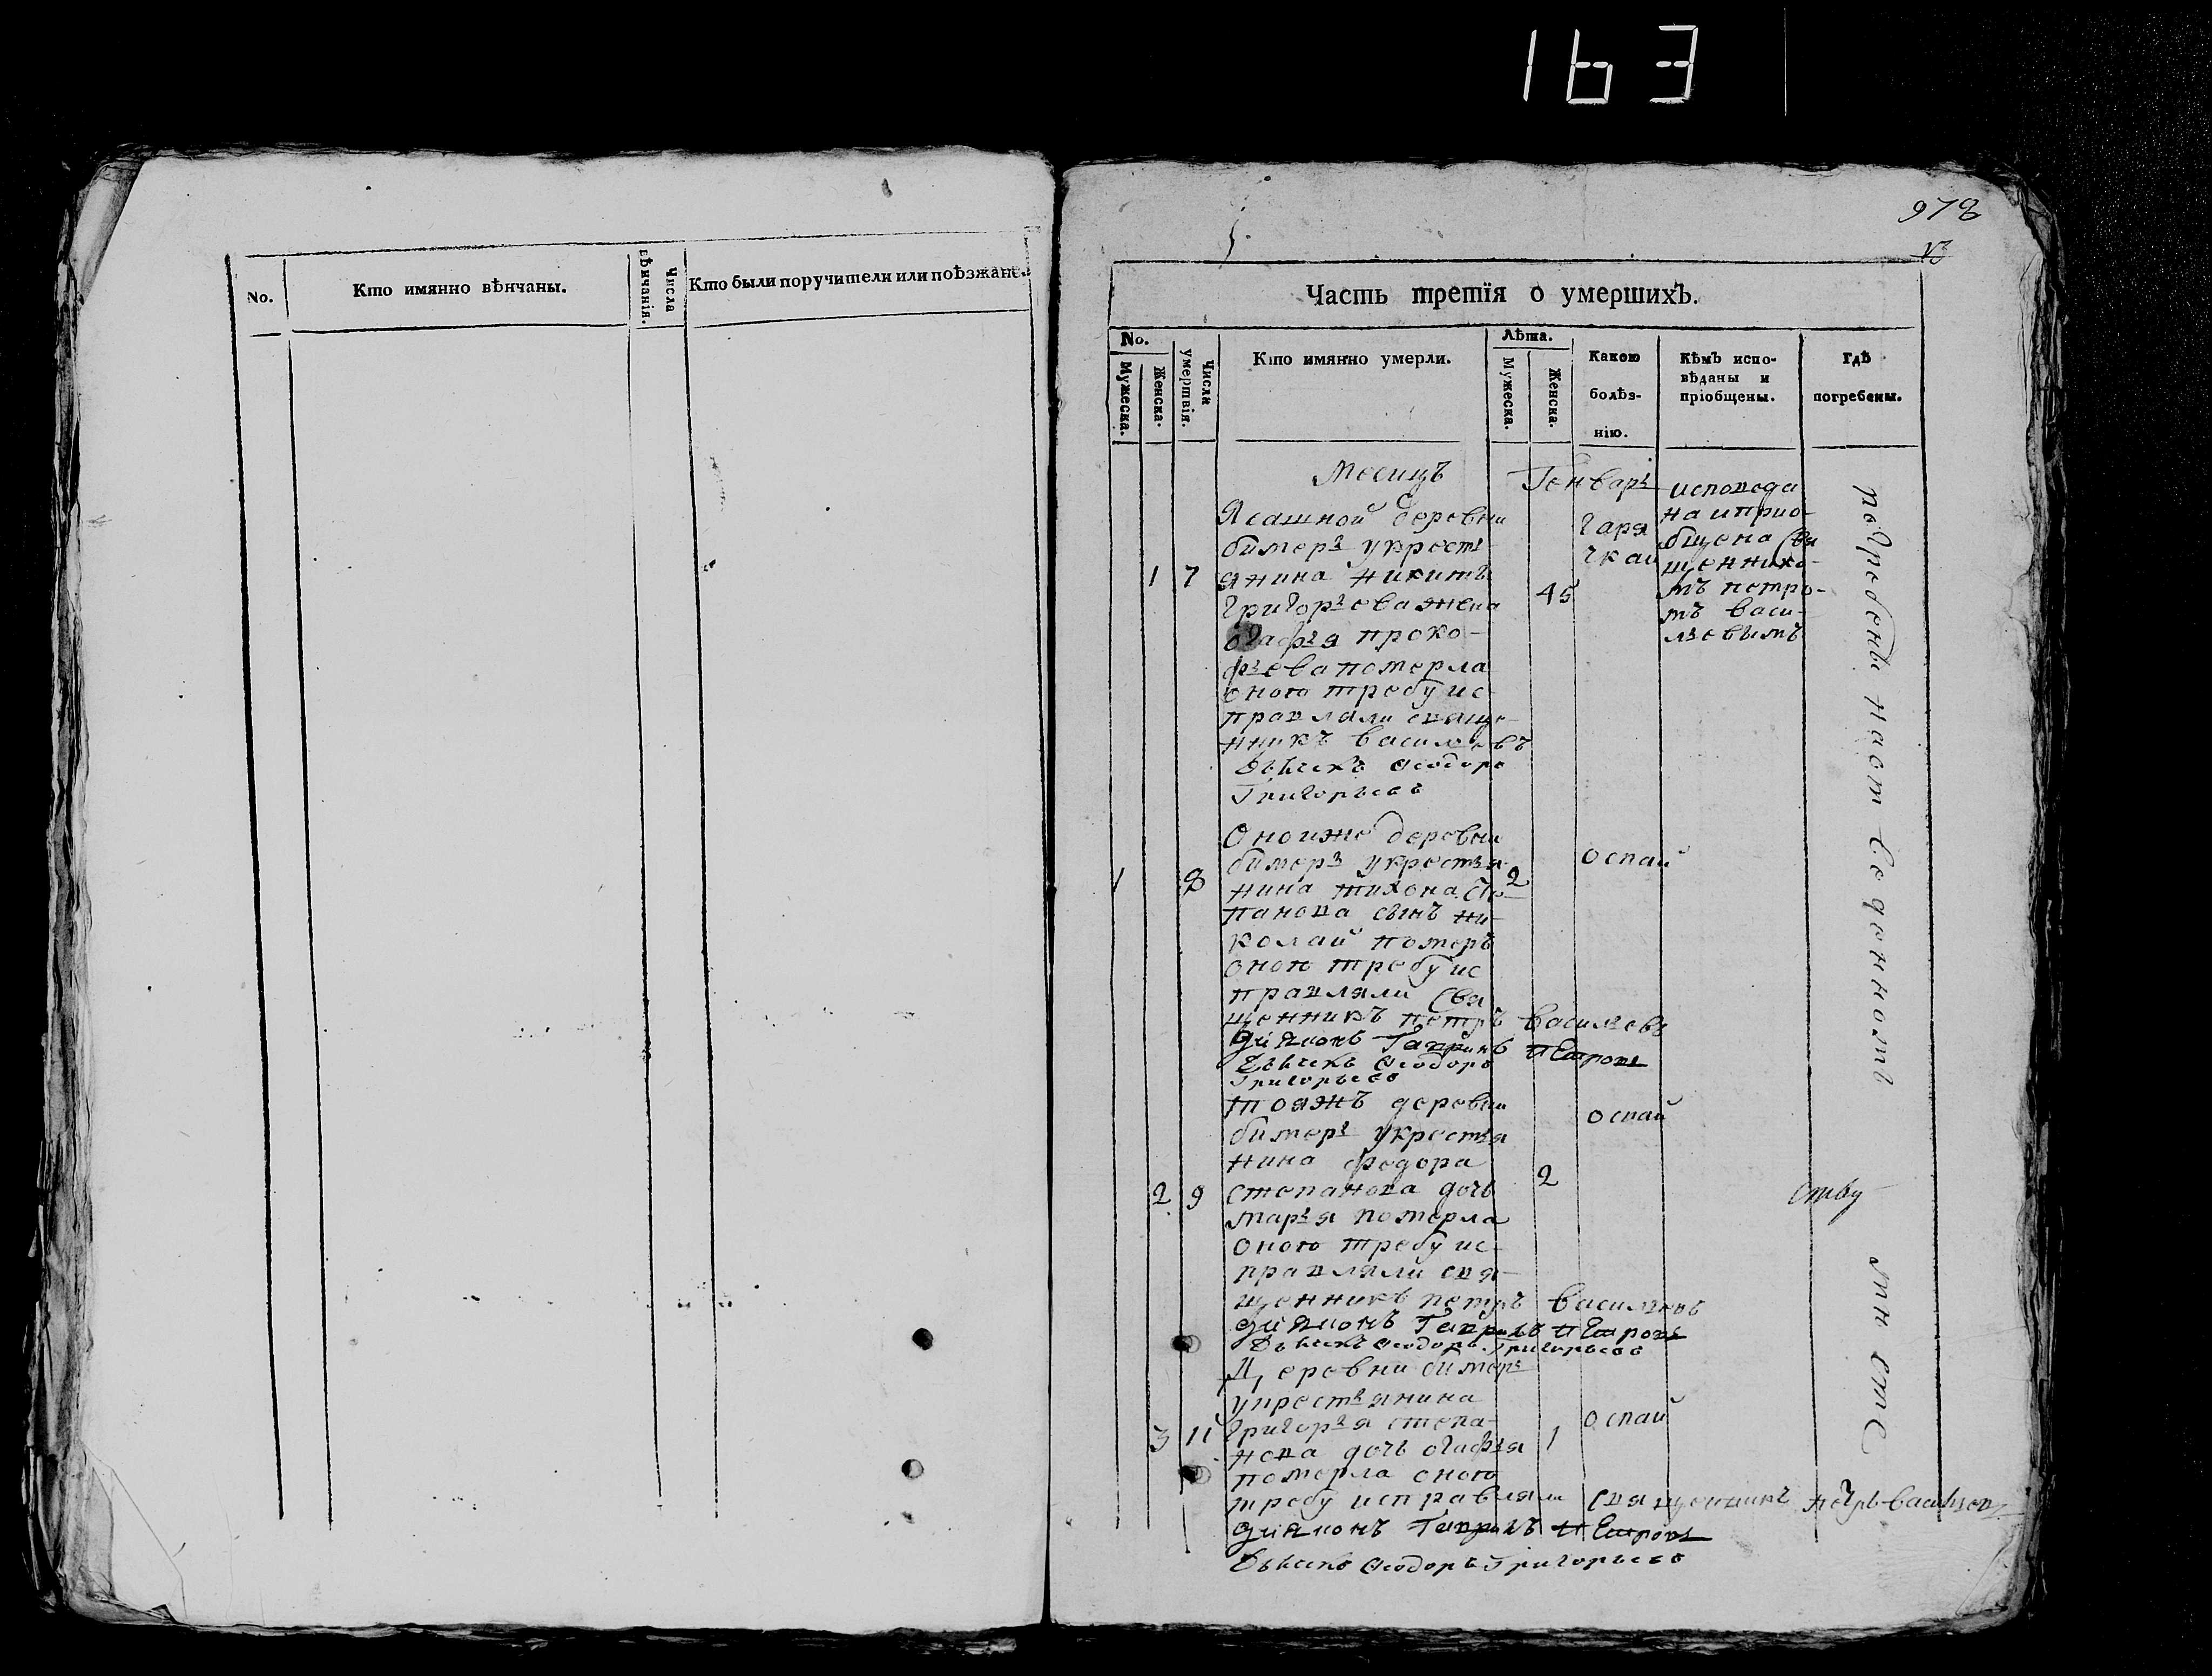 163
No.
Кто имянно вѣнчаны.
Числа вѣнчанія.
Кто были поручители или поѣзжане.
978
Часть третїя о умершихъ.
No.
Мужеска.
Женска.
Числа умертвія.
Кто имянно умерли.
Лѣта.
Мужеска.
Женска.
Какою
болѣз-
нію.
Кѣмъ испо-
вѣданы и
пріобщены.
гдѣ
погребены.
Месицъ Генварь
Ясашной деревни
бимерь укресть
1 7 янина никиты
григорьева жена 45
огафья проко-
фьева померла
оною требу ис
правляли свяще-
нникъ васильевъ
Дьячекъ Ѳеодоръ
Григорьевъ
гаря
чкай
исповеда
на иприо-
бщена свя
щеннико-
мъ петро-
мъ васи-
льевымъ
Оноиже деревни
бимерь укрестья
1 8 нина тихона сте- 2
панова сынъ ни-
колай померъ
оною требу ис
правляли свя
щенникъ петръ васильевъ
дияконъ Гаврилъ Петровъ
Дьячекъ Ѳеодоръ
Григорьевъ
оспай
тояжъ деревни
бимерь укрестья
нина федора
2 9 степанова дочь 2
марья померла
оною требу ис-
правляли свя-
щенникъ петръ васильевъ
дияконъ Гаврилъ Петровъ
Дьячекъ Ѳеодоръ Григорьевъ
оспай
Деревни бимерь
укрестьянина
3 11 григорья степа- 1
нова дочь огафья
померла оною
требу исправляли священникъ петръ васильев
дияконъ Гаврилъ Петровъ
Дьячекъ Ѳеодоръ Григорьевъ
оспай
погребены наот веденномъ
мнсте